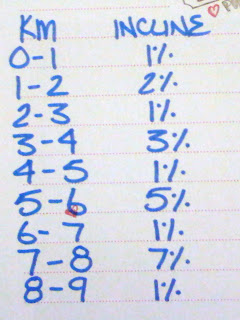 KM INCLINE
0-1 1%
1-2 2%
2-3 1%
3-4 3%
4-5 1%
5-6 5%
6-7 1%
7-8 7%
8-9 1%